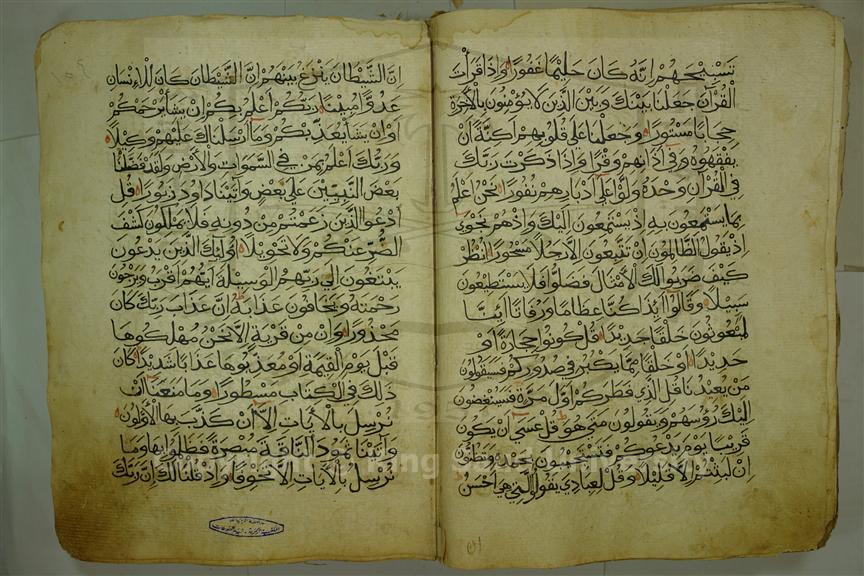 تسبيحهم انه كان حليما غفورا واذا قرأت
القرآن جعلنا بينك وبين الذين لا يؤمنون بالآخرة
حجابا مستورا وجعلنا على قلوبهم اكنة ان
يفقهوه وفي آذانهم وقرا واذا ذكرت ربك
في القرآن وحده ولوا على ادبارهم نفورا نحن اعلم
بما يستمعون به اذ يستمعون اليك واذ هم نجوى
اذ يقول الظالمون ان تتبعون الا رجلا مسحورا انظر
كيف ضربوا لك الامثال فضلوا فلا يستطيعون
سبيلا وقالوا أئذا كنا عظاما ورفاتا أئنا
لمبعوثون خلقا جديدا قل كونوا حجارة او
حديدا او خلقا مما يكبر في صدوركم فسيقولون
من يعيدنا قل الذي فطركم اول مرة فسينغضون
اليك رؤسهم ويقولون متى هو قل عسى ان يكون
قريبا يوم يدعوكم فتستجيبون بحمده وتظنون
ان لبثتم الا قليلا وقل لعبادي يقولوا التي هي احسن
ان الشيطان ينزغ بينهم ان الشيطان كان للانسان
عدوا مبينا ربكم اعلم بكم ان يشأ يرحمكم
او ان يشأ يعذبكم وما أرسلناك عليهم وكيلا
وربك اعلم بمن في السموات والارض ولقد فضلنا
بعض النبيين على بعض وآتينا داود زبورا قل
ادعوا الذين زعمتم من دونه فلا يملكون كشف
الضر عنكم ولا تحويلا اولئك الذين يدعون
يبتغون الى ربهم الوسيلة ايهم اقرب ويرجون
رحمته ويخافون عذابه ان عذاب ربك كان
محذورا وان من قرية الا نحن مهلكوها
قبل يوم القيمة او معذبوها عذابا شديدا كان
ذلك في الكتاب مسطورا وما منعنا ان
نرسل بالآيات الا ان كذب بها الاولون
وآتينا ثمود الناقة مبصرة فظلموا بها وما
نرسل بالآيات الا تخويفا واذ قلنا لك ان ربك